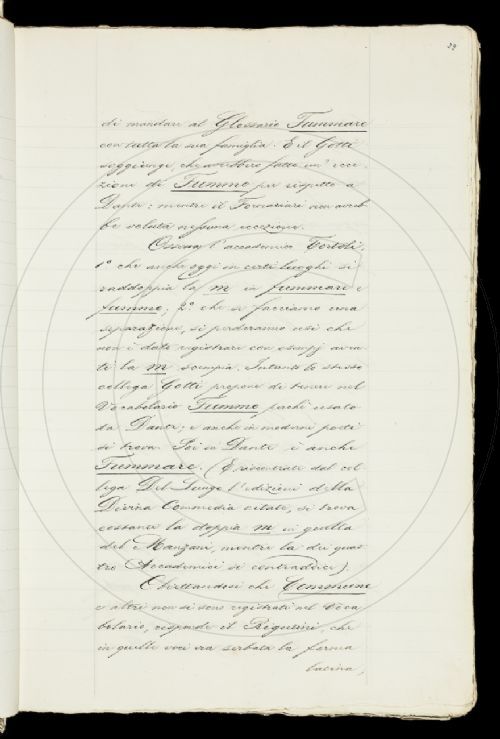 39
di mandare al Glossario Fummare
con tutta la sua famiglia. E il Gotti
soggiunge, che avrebbero fatta un' ecce-
zione di Fummo per rispetto a
Dante: mentre il Fornaciari non avreb-
be voluta nessuna eccezione.
Osserva l'accademico Tortoli,
1.º che anche oggi in certi luoghi si
raddoppia la m in fummare e
fummo; 2.º che se facciamo una
separazione, si perderanno voci che
non è dato registrare con esempj aven-
ti la m scempia. Intanto lo stesso
collega Gotti propone di tenere nel
Vocabolario Fummo perchè usato
da Dante; e anche in moderni poeti
si trova. Poi in Dante è anche
Fummare. (Riscontrate dal col-
lega Del Lungo l'edizioni della
Divina Commedia citate, si trova
costante la doppia m in quella
del Manzani, mentre la dei quat-
tro Accademici si contraddice).
Obiettandosi che Commune
e altri non si sono registrati nel Voca-
bolario, risponde il Rigutini, che
in quelle voci era serbata la forma
latina,